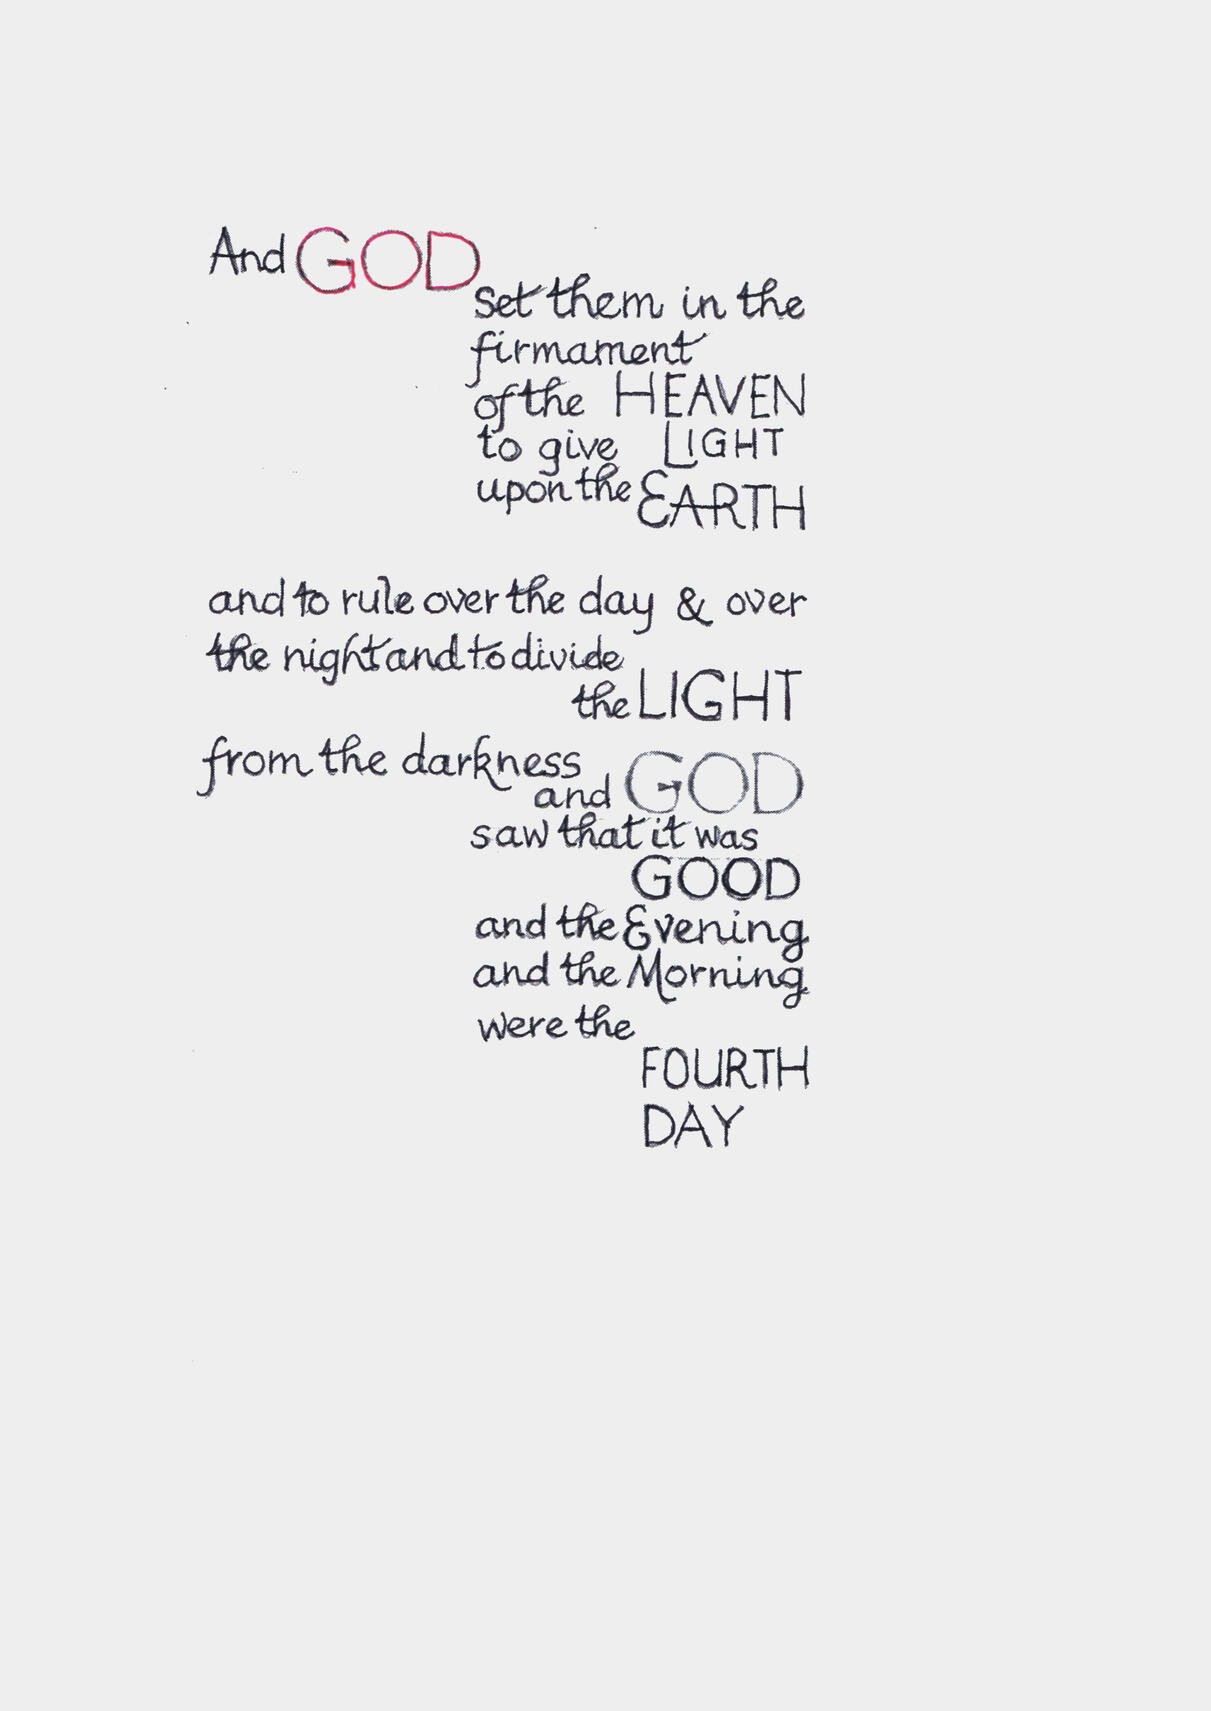 And GOD
set them in the
firmament
of the HEAVEN
to give LIGHT
upon the EARTH
and to rule over the day & over
the night and to divide
the LIGHT
from the darkness
and GOD
saw that it was
GOOD
and the Evening
and the Morning
were the
FOURTH
DAY